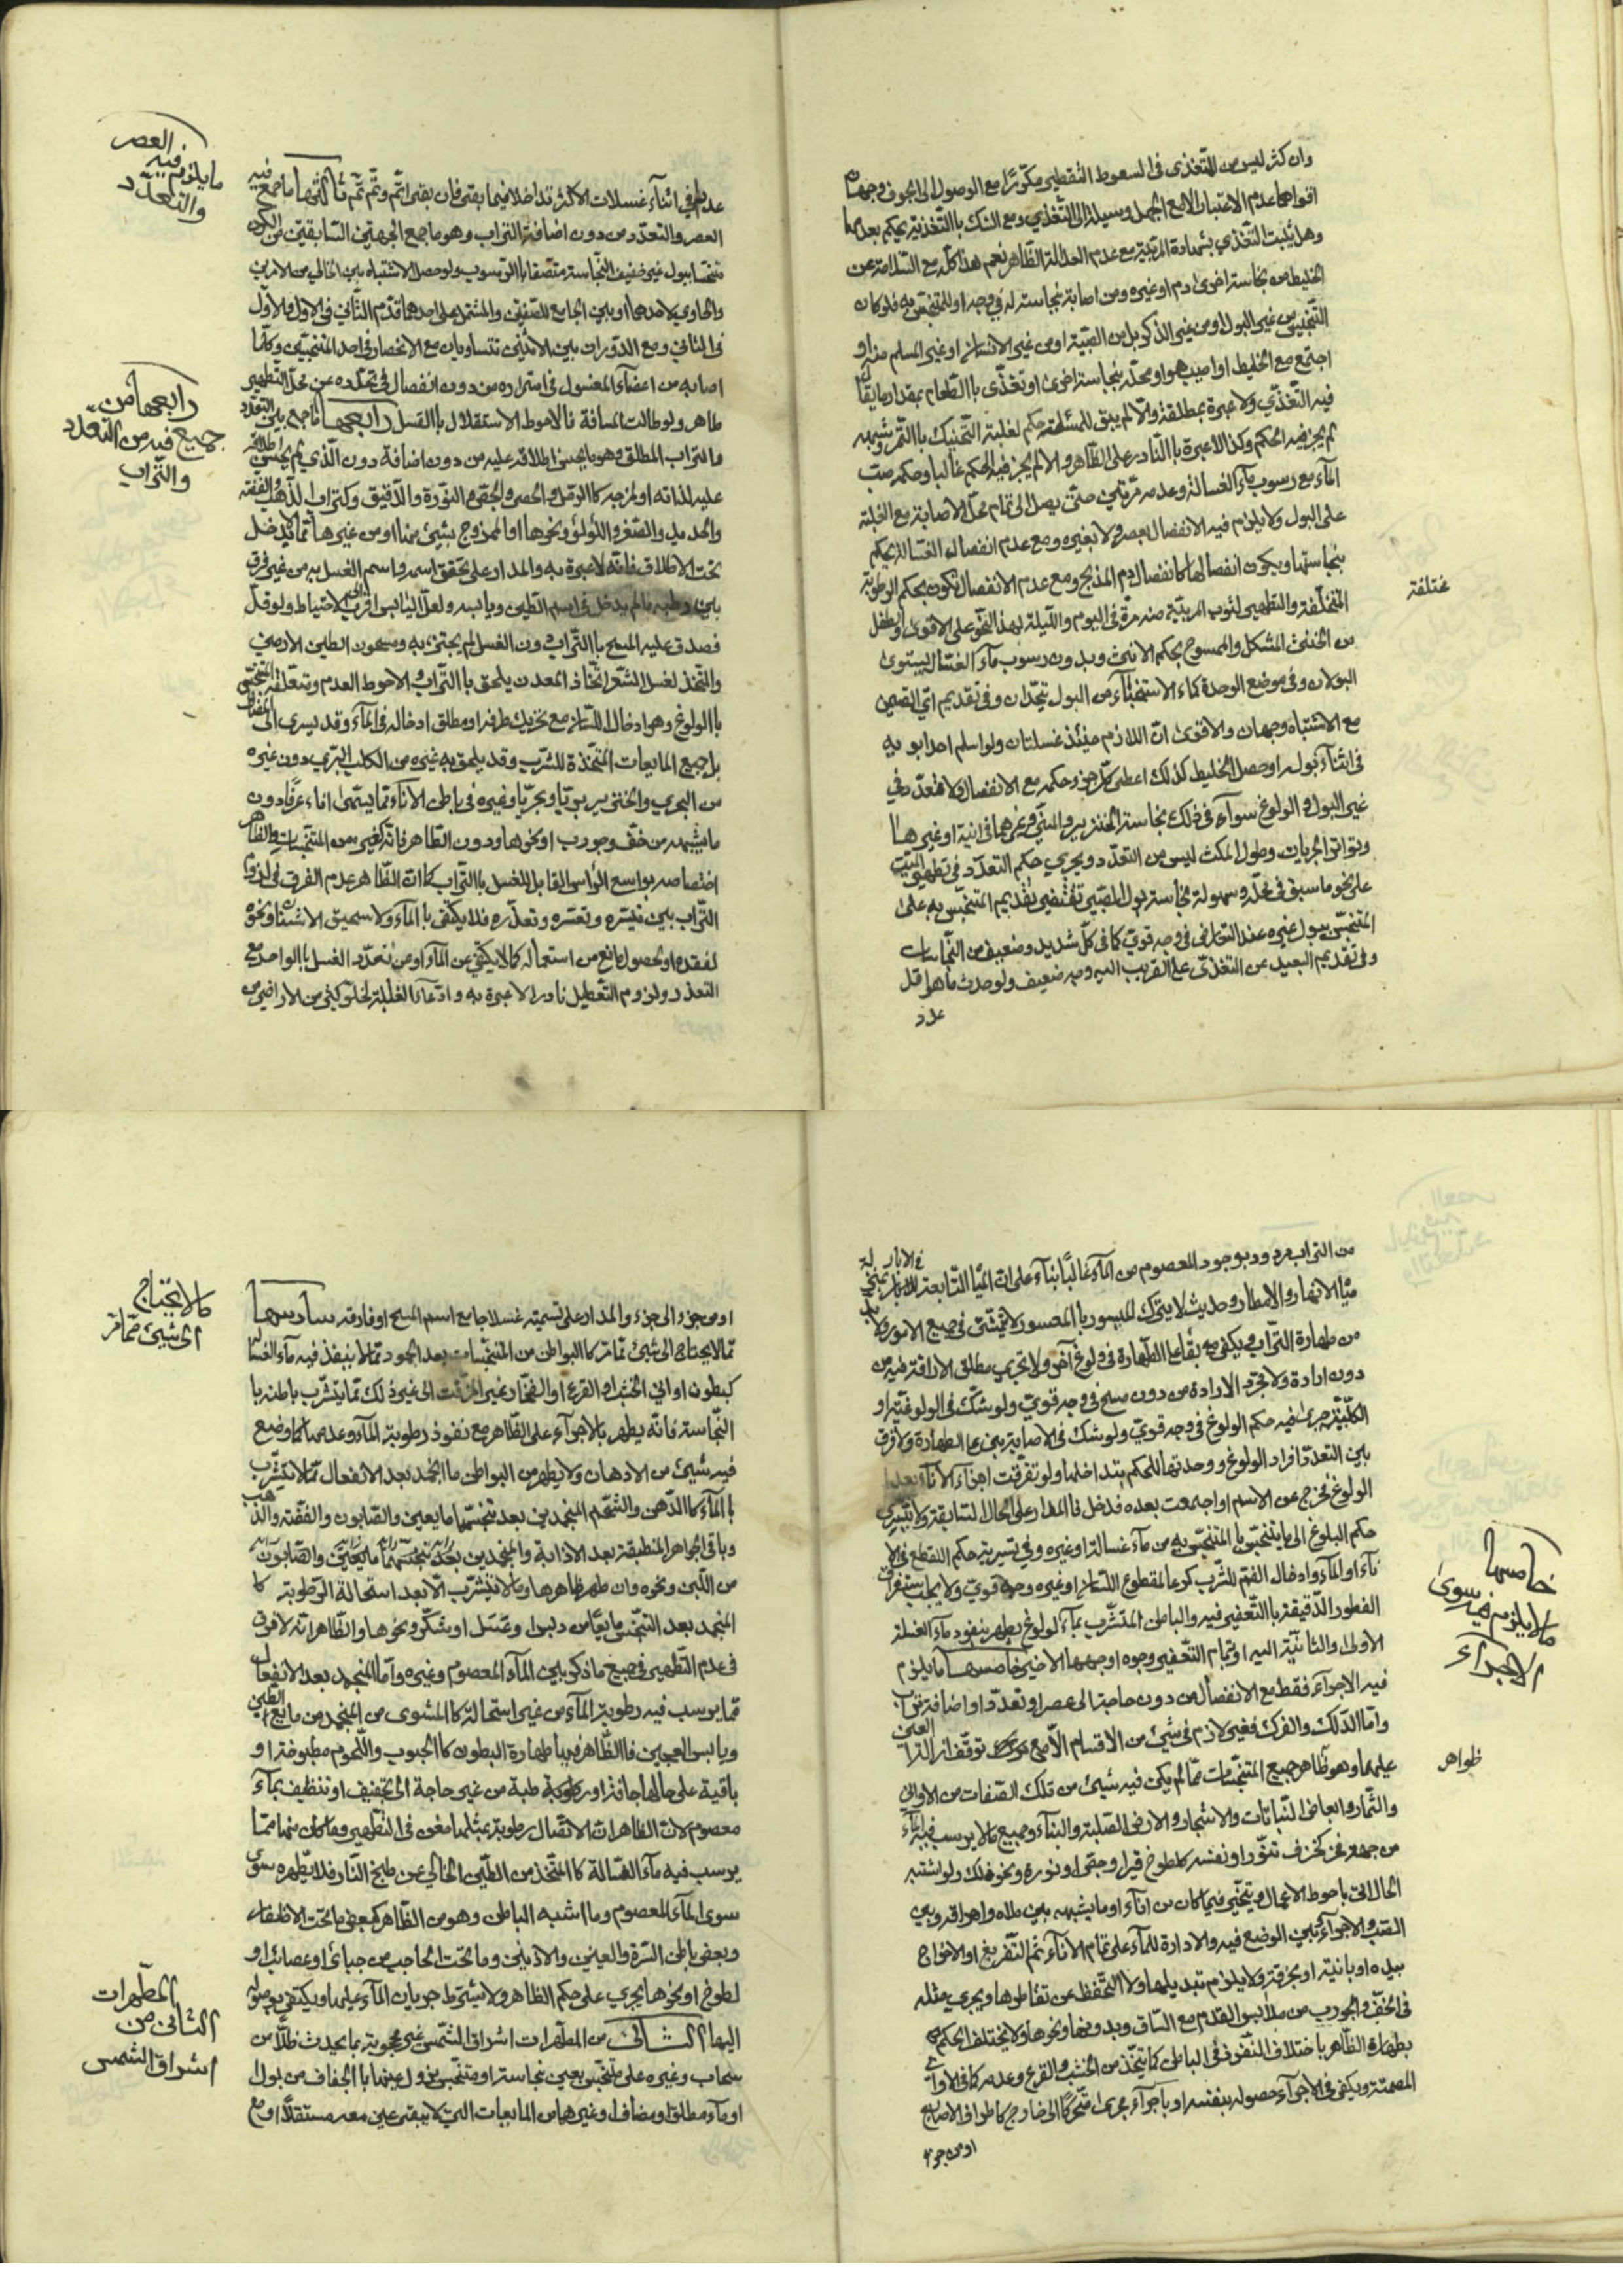 وان كثر ليس من التغذي في السعوط التقطير مكررًا مع الوصول الى الجوف وجهان
اقواهما عدم الاعتبار الا مع الجهل وسيلة الى التغذي ومع الشك بالتغذية يحكم بعدمها
وهل يثبت التغذي بشهادة المربية مع عدم العدالة الظاهر نعم هذا كله مع السلامة عن
الخليط من نجاسة اخرى دم او غيره ومن اصابة نجاسة له في وجه او للمتنجس به فلو كان
التنجيس من غير البول او من غير الذكر بل من الصبية او من غير الانسان او غير المسلم منه او
اجتمع مع الخليط او اصيب هو او محله بنجاسة اخرى او تغذى بالطعام بمقدار ما يقال
فيه التغذي ولا عبرة بمطلقه والا لم يبق للمسئلة حكم لغلبة التحنيك بالتمر وشبهه
لم يجر فيه الحكم وكذا لا عبرة بالنادر على الظاهر والا لم يجز فيه الحكم غالبا وحكمه صب
الماء مع رسوب ماء الغسالة وعدمه مرتين حتى يصل الى تمام محل الاصابة مع الغلبة
على البول ولا يلزم فيه الانفصال بعصر ولا بغيره ومع عدم انفصال الغسالة يحكم
بنجاستها ويكون انفصالها كانفصال دم المذبح ومع عدم الانفصال تكون بحكم الرطوبة
المتخلفة والتطهير لثوب المربية منه مرة في اليوم والليلة لهذا النحو على الاقوى والطفل
مختلفة
من الخنثى المشكل والممسوح بحكم الانثى وبدون رسوب ماء الغسال يستوى
البولان وفي موضع الوحدة كماء الاستنجاء من البول يتحدان وفي تقديم اي القسمين
مع الاشتباه وجهان والاقوى ان اللازم حينئذ غسلتان ولو اسلم احد ابويه
في اثناء بوله او حصل الخليط كذلك اعطى كل جزء حكمه مع الانفصال ولا تعدد في
غير البول والولوغ سواء في ذلك نجاسة الخنزير والمني وغيرهما في انية او غيرها
وتواتر الجريات وطول المكث ليس من التعدد ويجري حكم التعدد في تطهير الميت
على نحو ما سبق في محله وسهولة نجاسة بول الصبي تقتضي تقديم المتنجس به على
المتنجس ببول غيره عند التعارض في وجه قوي كما في كل شديد وضعيف من النجاسات
وفي تقديم البعيد عن التغذي على القريب اليه وجه ضعيف ولو حدث ماهو اقل
عدد
العصر
ما يلزم فيه
والتعدد
عدد في اثناء غسلات الاكثر تداخلا فيما بقي فان بقي اتم وتم تم ثالثها ما جمع فيه
العصر والتعدد من دون اضافة التراب وهو ما جمع الجهتين السابقتين من الكون
متنجسا ببول غير خفيف النجاسة متصفا بالرسوب ولو حصل الاشتباه بين الخالي من الامرين
والحاوي لاحدهما او بين الجامع للصفتين والمشتمل على احدهما قدم الثاني في الاول والاول
في الثاني ومع الدوران بين الاثنين تتساويان مع الانحصار في احد المتنجسين وكلما
اصابه من اعضاء المغسول في استمراره من دون انفصال في تمدده عن محل التطهير
طاهر ولو طالت المسافة فالاحوط الاستقلال بالغسل رابعها ما جمع بين التعدد
رابعها من
جميع فيه من التعدد
والتراب
والتراب المطلق وهو ما يحسن اطلاقه عليه من دون اضافة دون الذي لم يحسن اطلاقه
عليه لذاته او لمزجه كالرمل والحصى والجص والنورة والدقيق وكتراب الذهب والفضة
والحديد والصفر واللؤلؤ ونحوها او الممزوج بشيئ منها او من غيرها مما لا يدخل
تحت الاطلاق فانه لا عبرة به والمدار على تحقق اسمه واسم الغسل به من غير فرق
بين رطبه مالم يدخل في اسم الطين ويابسه ولعل اليابس اقرب الى الاحتياط ولو قل
فصدق عليه المسح بالتراب دون الغسل لم يجتز به ومسحون الطين الارمني
والمتخذ لغسل الشعر المتخاذ المعدن يلحق بالتراب والاحوط العدم وتتعلق المتنجس
بالولوغ وهو ادخال اللسان مع تحريك طرفه او مطلق ادخاله في الماء وقد يسرى الى المضاف
بل جميع المايعات المتخذة للشرب وقد يلحق به غيره من الكلب البري دون غيره
من البحري والخنزير بريا وبحريا وغيره في باطن الاناء مما يسمى اناء عرفا دون
ما يشبهه من خف وجورب او نحوها ودون الظاهر فانه كغيره من المتنجسات والظاهر
اختصاصه بواسع الرأس القابل للغسل بالتراب كما ان الظاهر عدم الفرق في لزوم
التراب بين تيسره وتعسره وتعذره فلا يكتفى بالماء ولا سحيق الاشنان ونحوه
لفقده او لحصول مانع من استعماله كما لا يكتفي عن الماء او من تعدد الغسل بالواحد مع
التعذر ولزوم التعطيل نادرا لا عبرة به وادعاء الغلبة لخلو كثير من الاراضي من
من التراب مردود بوجود المعصوم من الماء غالبًا بناء على ان المياه التابعة للانهار
في الابار
مياه الانهار والامطار وحديث لا يترك الميسور بالمعسور لا يتمشى في جميع الامور ولا بد
من طهارة التراب ويكفى فيه بقاءها الطهارة في ولوغ اخر ولا تجري مطلق الاراقة فيه من
دون ارادة ولا مجرد الارادة من دون مسح في وجه قوي ولو شك في الولوغية او
الكلبية جرى فيه حكم الولوغ في وجه قوي ولو شك في الاصابة بنى على الطهارة ولا فرق
بين التعدد افراد الولوغ ووحدتها للحكم بتداخلها ولو تفرقت اجزاء الاناء بعد
الولوغ فخرج عن الاسم او اجتمعت بعده فدخل فالمدار على الحال السابقة ولا يسرى
حكم البلوغ الى ما يتنجس بالمتنجس به من ماء غسالة او غيره وفي تسرية حكم اللقطع في الا
ناء او الماء وادخال الفم للشرب كرعا لمقطوع اللسان او غيره وجه قوي ولا يجب استغراق
الفطور الدقيقة بالتعفير فيه والباطن المتشرب بماء لولوغ يطهر بنفوذ ماء الغسلة
الاولى والثانية اليه او بتمام التعفير وجوه اوجهها الاخير خامسها ما يلزم
خامسها
ما لا يلزم فيه سوى
الاجراء
فيه الاجراء فقط مع الانفصال من دون حاجة الى عصر او تعدد او اضافة تراب
واما الدلك والفرك فغير لازم في شيئ من الاقسام الا مع توقف ازالة العين
ظواهر
عليهما وهو ظاهر جميع المتنجسات مما لم يكن فيه شيئ من تلك الصفات من الاواني
والثمار وابعاض النباتات والاشجار والارض الصلبة والبناء وجميع ما لا يرسب فيه الماء
من جهة عن كخزف تنور او نفسه كمطوخ قير او جص او نورة ونحو ذلك ولو اشتبه
الحال اتى باحوط الاعمال ويتخير فيما كان من اناء او ما يشبهه بين ملاه واهراقه وبين
الصب والاجراء بين الوضع فيه والادارة للماء على تمام الاناء ثم التفريغ او الاخراج
بيده او بانية او بخرقة ولا يلزم تبديلها ولا التحفظ عن تقاطرها ويجري مثله
في الخف والجورب من ملابس القدم مع الساق وبدونها ونحوها ولا يختلف الحكم
بطهارة الظاهر باختلاف النفوذ في الباطن كما يتخذ من الخشب والقرع وعدمه كما في الاواني
المصمتة ويكفى في الاجراء حصوله بنفسه او باجراء مجرى متحركًا الى خارج كاطراف الاصابع
او من جزء
او من جزء الى جزء والمدار على تسميته غسلا جامع اسم المسح او فارقه سادسها
ما لا يحتاج
الى شيئ مما مر
مما لا يحتاج الى شيئ مما مر كالبواطن من المتنجسات بعد الجمود مما لا ينفذ فيه ماء الغسالة
كبطون اواني الخشب او القرع او الفخار وغير المزفت الى غير ذلك مما يتشرب باطنه با
النجاسة فانه يطهر بالاجراء على الظاهر مع نفوذ رطوبة الماء وعدمها كما وضع
فيه شيئ من الادهان ولا يطهر من البواطن ما انجمد بعد الانفعال مما لا يتشرب
بالماء كالدهن والشحم المنجمدين بعد تنجسهما مايعين والصابون والفضة والذهب
وباقي الجواهر المنطبقة بعد الاذابة والمنجمدين بعد تنجسهما مايعين والصابون
من اللبن ونحوه وان طهر ظاهرها وما لا يتشرب الا بعد استحالة الرطوبة كا
المنجمد بعد التنجس مايعًا من دبس او عسل او سكر ونحوها والظاهر انه لا فرق
في عدم التطهير في جميع ما ذكر بين الماء المعصوم وغيره واما المنجمد بعد الانفعال
مما يرسب فيه رطوبة الماء من غير استحالة كالمشوى من المنجمد من مايع الطين
ويابس العجين فالظاهر فيها طهارة البطون كالحبوب واللحوم مطبوخة او
باقية على حالها جافة او رطبة من غير حاجة الى تجفيف او تنظيف بماء
معصوم لان الظاهر ان الاتصال برطوبة بمثلها مغن في التطهير وما كان منها مما
يرسب فيه ماء الغسالة كالمتخذ من الطين الخالي عن طبخ النار فلا يطهره سوى
سوى الماء المعصوم وما اشبه الباطن وهو من الظاهر كبعض ما تحت الاظفار
وبعض باطن السرة والعينين والاذنين وما تحت الحاجب من جبائر او عصائب او
لطوخ او نحوها يجرى على حكم الظاهر ولا يشترط جريان الماء عليها ويكتفى بوصوله
المطهرات
الثاني من
اشراق الشمس
اليها الثاني من المطهرات اشراق الشمس غير محجوبة بما يحدث ظلًا من
سحاب وغيره على متنجس بعين نجاسة او متنجس يزول عينها بالجفاف من بول
او ماء مطلق او مضاف او غيرها من المايعات التي لا تبقى عين معه مستقلًا او مع